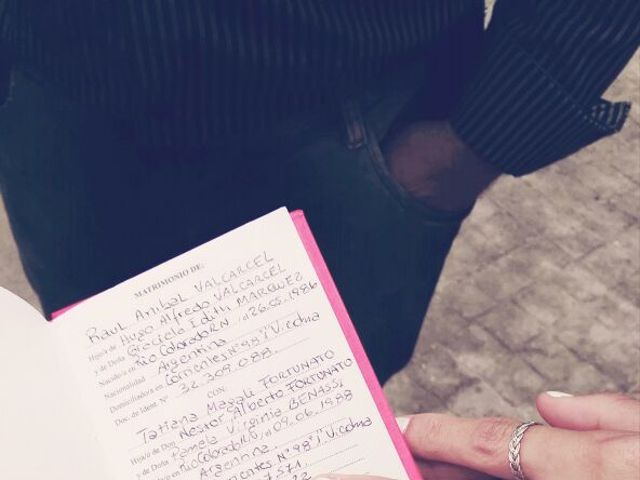 MATRIMONIO DE:
Raul Anibal VALCARCEL
Hijo/a de Hugo Alfredo VALCARCEL
y de Doña Graciela Edith MARQUEZ
Nacido/a en Rio Colorado RN, el 26.05.1986
Nacionalidad Argentina
Domiciliado/a en Corrientes Nº 98 "I" Viedma
Doc. de Ident. Nº 32.309.088.
CON:
Tatiana Magali FORTUNATO
Hijo/a de Don Nestor Alberto FORTUNATO
y de Doña Pamela Virginia BENASSI
Rio Colorado RN, el 09.06.1988
Argentina
Nº 98 "I" Viedma
7.571.